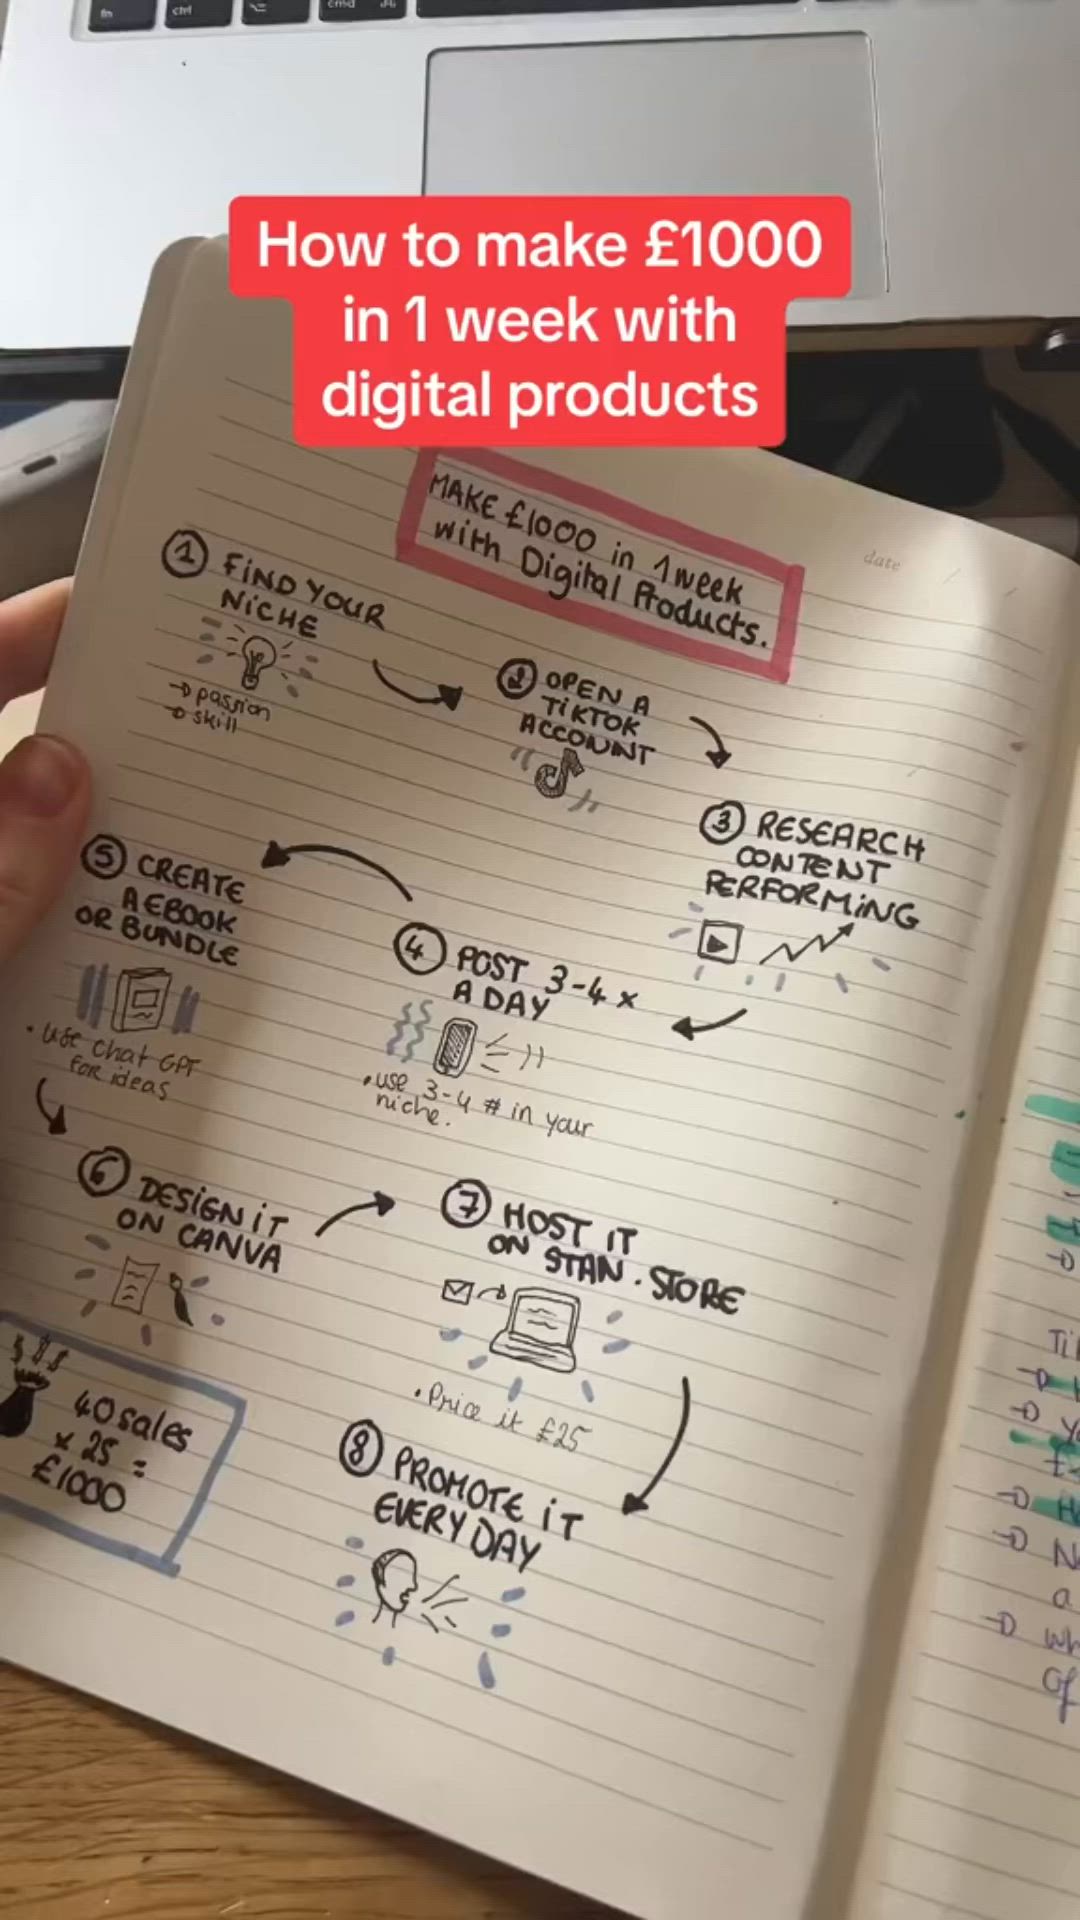 fn
ctrl
cmd
How to make £1000
in 1 week with
digital products
MAKE £1000 in 1 week
with Digital Products.
date / /
1 FIND YOUR
NICHE
→ passion
→ skill
2 OPEN A
TIKTOK
ACCOUNT
3 RESEARCH
CONTENT
PERFORMING
4 POST 3-4 x
A DAY
• use 3-4 # in your
niche.
5 CREATE
A EBOOK
OR BUNDLE
• use chat GPT
for ideas
6 DESIGN IT
ON CANVA
7 HOST IT
ON STAN.STORE
• Price it £25
8 PROMOTE IT
EVERY DAY
$ $ $
40 sales
x 25 =
£1000